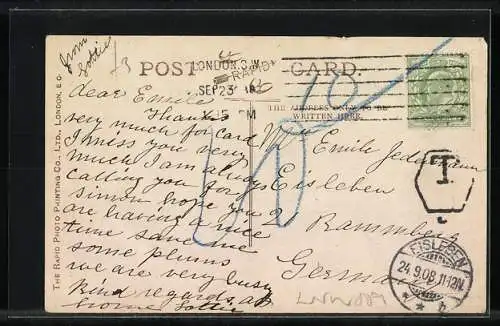 from
Lottie
POST CARD.
RAPID
LONDON.S.W.
SEP 23
PM
THE ADDRESS ONLY TO BE
WRITTEN HERE.
THE RAPID PHOTO PRINTING CO., LTD., LONDON, E.C.
dear Emile
Thanks
very much for card
I miss you very
much I am always
calling for you
simon hope you
are having a nice
time save me
some plums
we are very busy
kind regards
home Lottie
Emile Jedermann
Eisleben
2 Rammberg
Germany
T
EISLEBEN
24.9.08.11-12N.